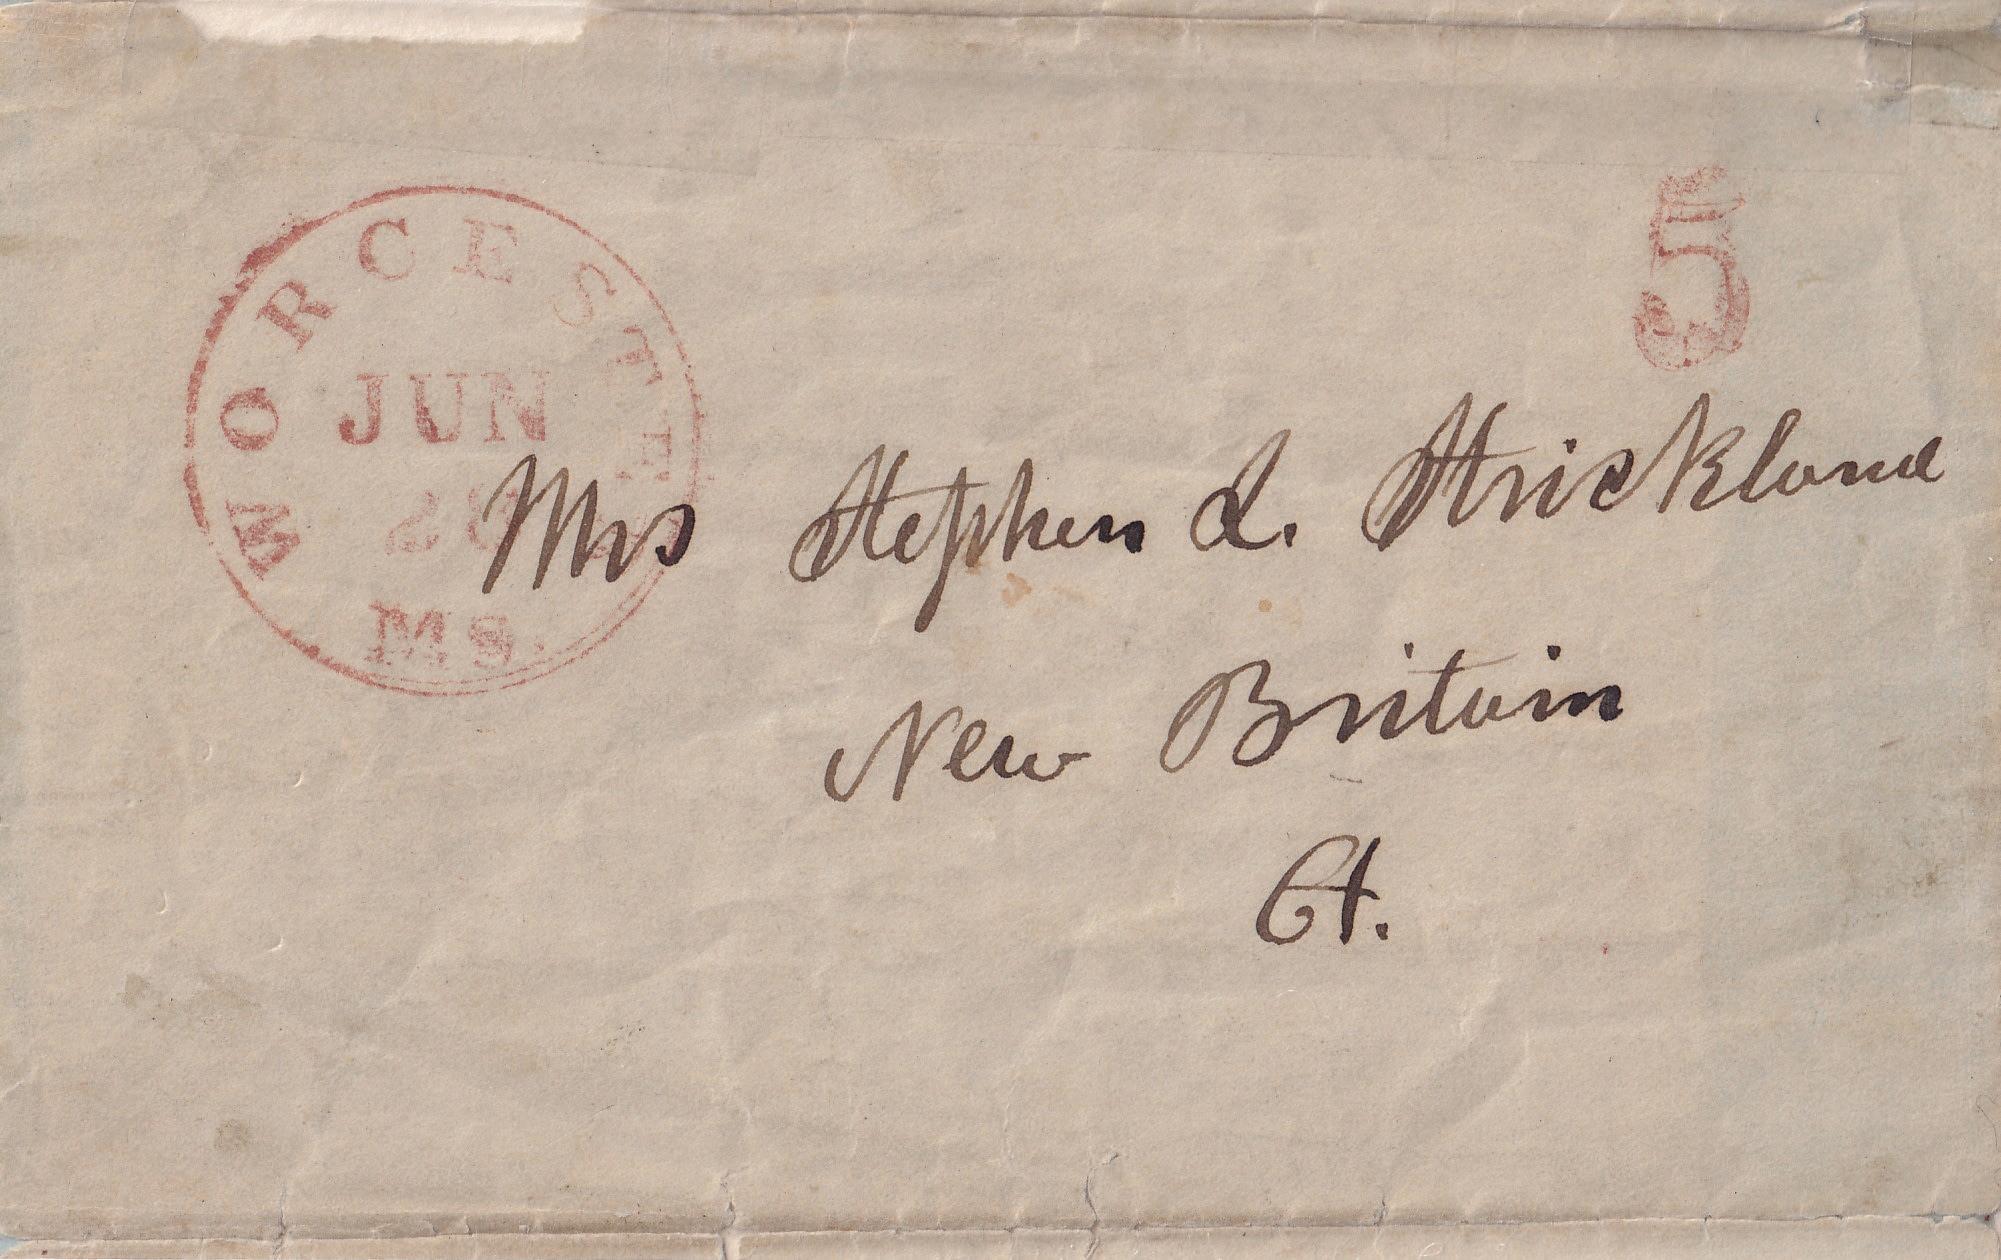 WORCESTER
JUN
28
MS.
5
Mrs Stephen L. Strickland
New Britain
Ct.